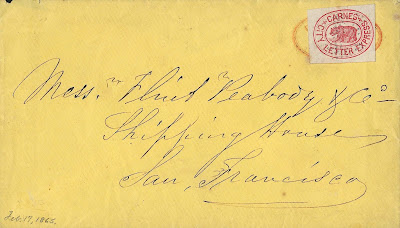 CARNES' CITY LETTER EXPRESS
Mess.rs Flint Peabody & Co
Shipping House
San Francisco
Feb. 17, 1865.